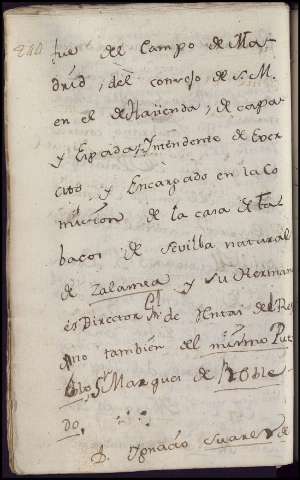 240
fue del Campo de Ma-
drid, del consejo de S. M.
en el de Haüenda, de capa
y Espada, Yntendente de Exer
cito, y Encargado en la Co
micion de la casa de Ta
bacos de Sevilla natural
de Zalamea y su Herman
es Director Gl. de Rentas del Rey
no tambien del mismo Pue
blo, Sr. Marques de Roble
do.
D. Ygnacio Suarez de